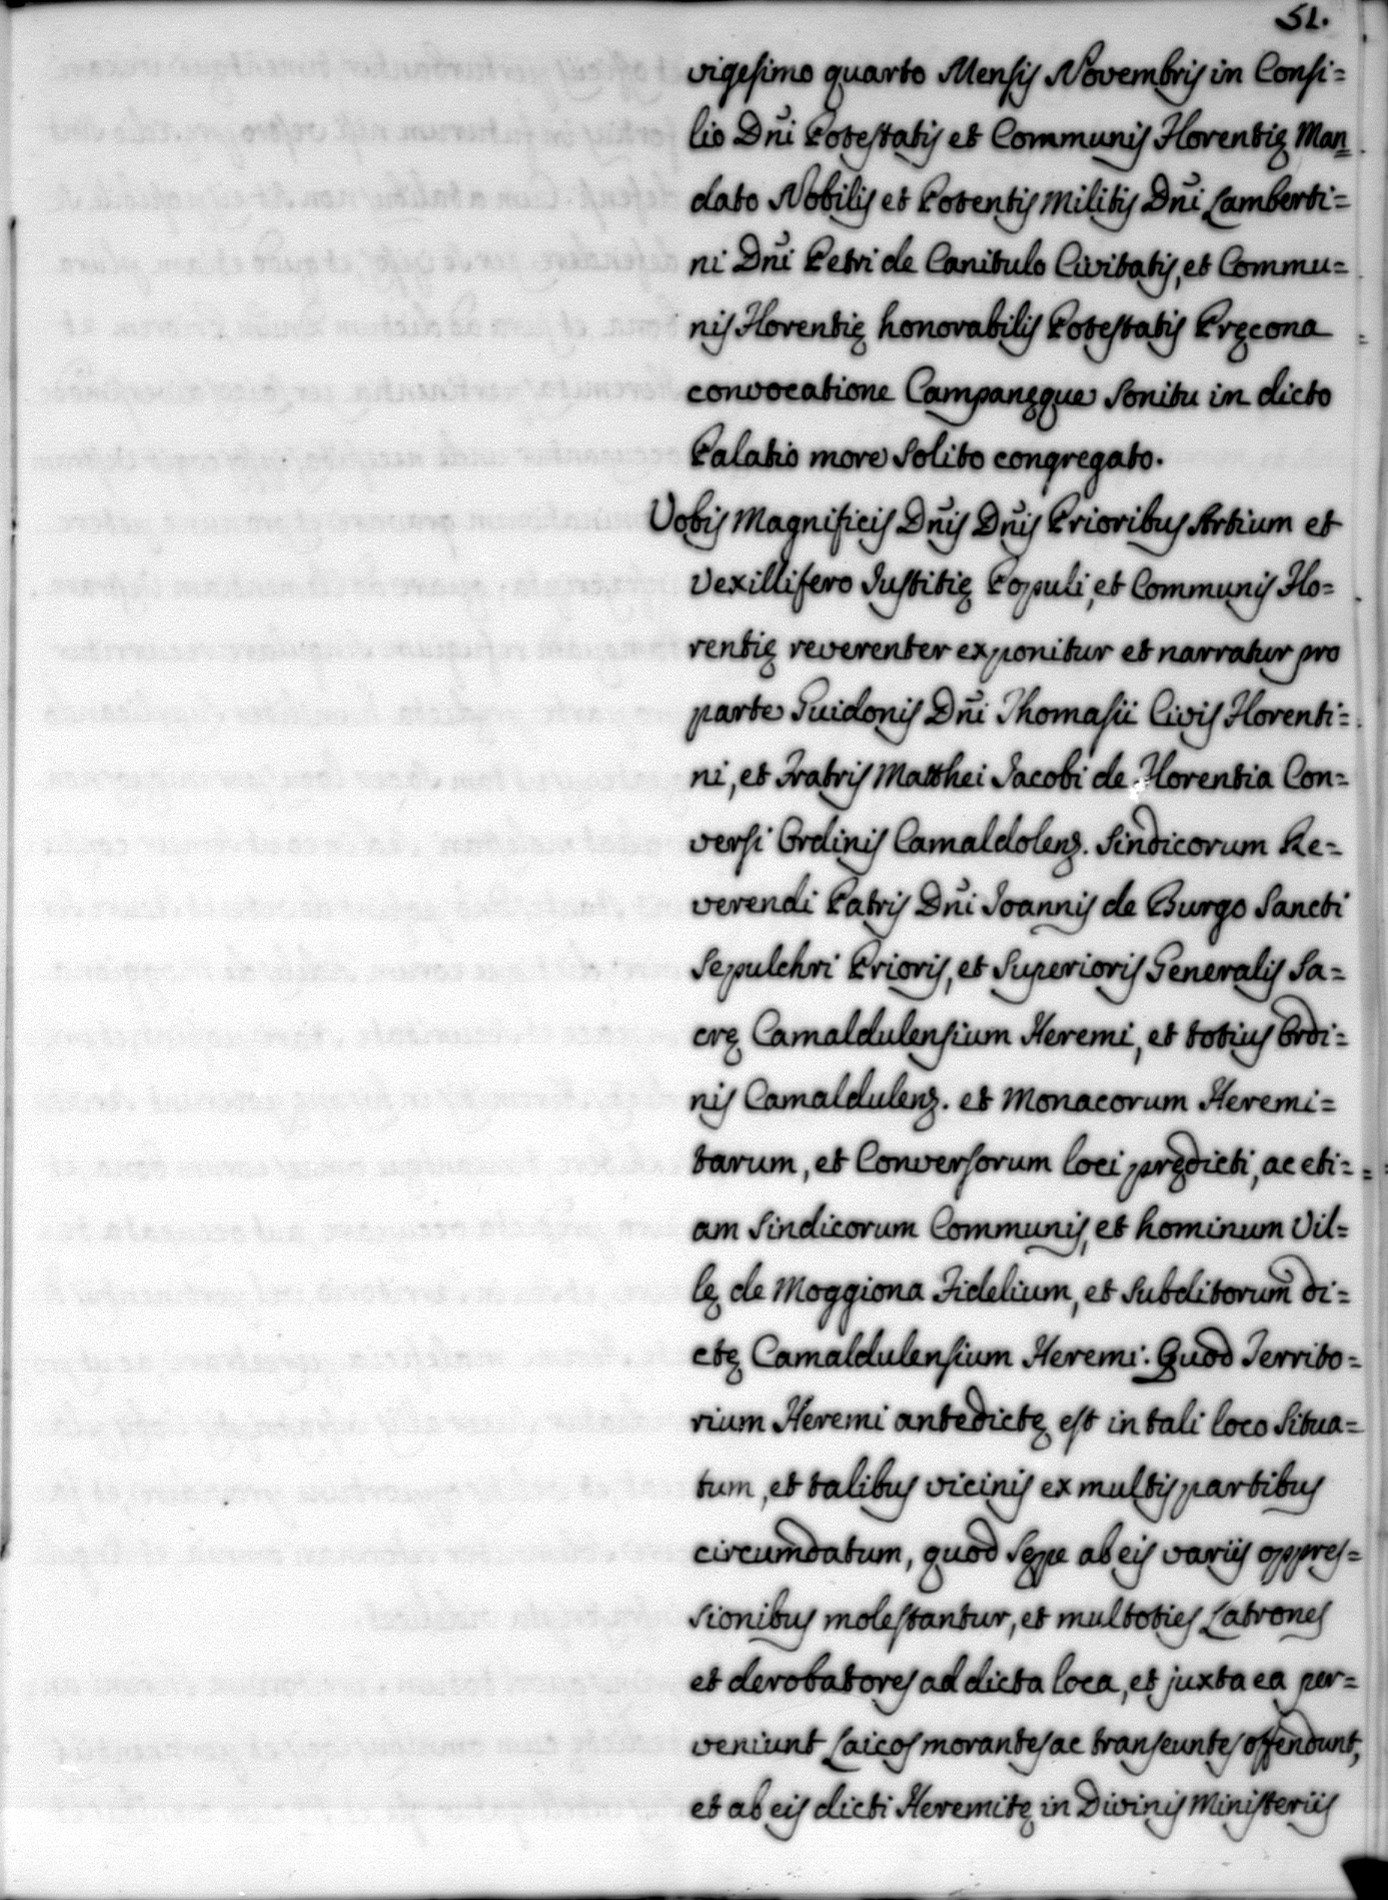 51.
vigesimo quarto Mensis Novembris in Consi=
lio Dñi Potestatis et Communis Florentię Man=
dato Nobilis et Potentis Militis Dñi Lamberti=
ni Dñi Petri de Canitulo Civitatis, et Commu=
nis Florentię honorabilis Potestatis Pręcona
convocatione Campanęque sonitu in dicto
Palatio more solito congregato.
Vobis Magnificis Dñis Dñis Prioribus Artium et
Vexillifero Iustitię Populi, et Communis Flo=
rentię reverenter exponitur et narratur pro
parte Guidonis Dñi Thomasii Civis Florenti=
ni, et Fratris Matthei Jacobi de Florentia Con=
versi Ordinis Camaldolenz. Sindicorum Re=
verendi Patris Dñi Joannis de Burgo Sancti
Sepulchri Prioris, et Superioris Generalis Sa=
crę Camaldulensium Heremi, et totius Ordi=
nis Camaldulenz. et Monacorum Heremi=
tarum, et Conversorum loci prędicti, ac eti=
am Sindicorum Communis, et hominum Vil=
lę de Moggiona Fidelium, et subditorum di=
ctę Camaldulensium Heremi. Quod Territo=
rium Heremi antedictę est in tali loco situa=
tum, et talibus vicinis ex multis partibus
circumdatum, quod sępe ab eis variis oppres=
sionibus molestantur, et multoties Latrones
et derobatores ad dicta loca, et juxta ea per=
veniunt Laicos morantes ac transeuntes offendunt,
et ab eis dicti Heremitę in Divinis Ministeriis